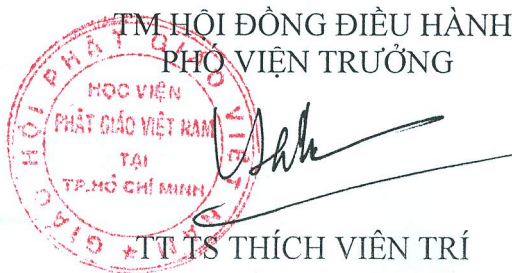 TM HỘI ĐỒNG ĐIỀU HÀNH
PHÓ VIỆN TRƯỞNG
GIÁO HỘI PHẬT GIÁO VIỆT NAM
HỌC VIỆN
PHẬT GIÁO VIỆT NAM
TẠI
TP.HỒ CHÍ MINH
TT TS THÍCH VIÊN TRÍ